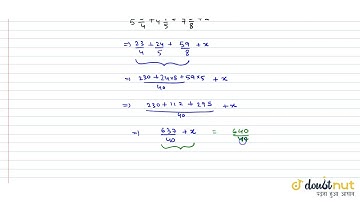 5 3/4 + 4 1/5 + 7 3/8 + x
⇒ 23/4 + 24/5 + 59/8 + x
⇒ 230 + 24×8 + 59×5 / 40 + x
⇒ 230 + 112 + 295 / 40 + x
⇒ 637/40 + x = 640/40
doubtnut
पढ़ना हुआ आसान